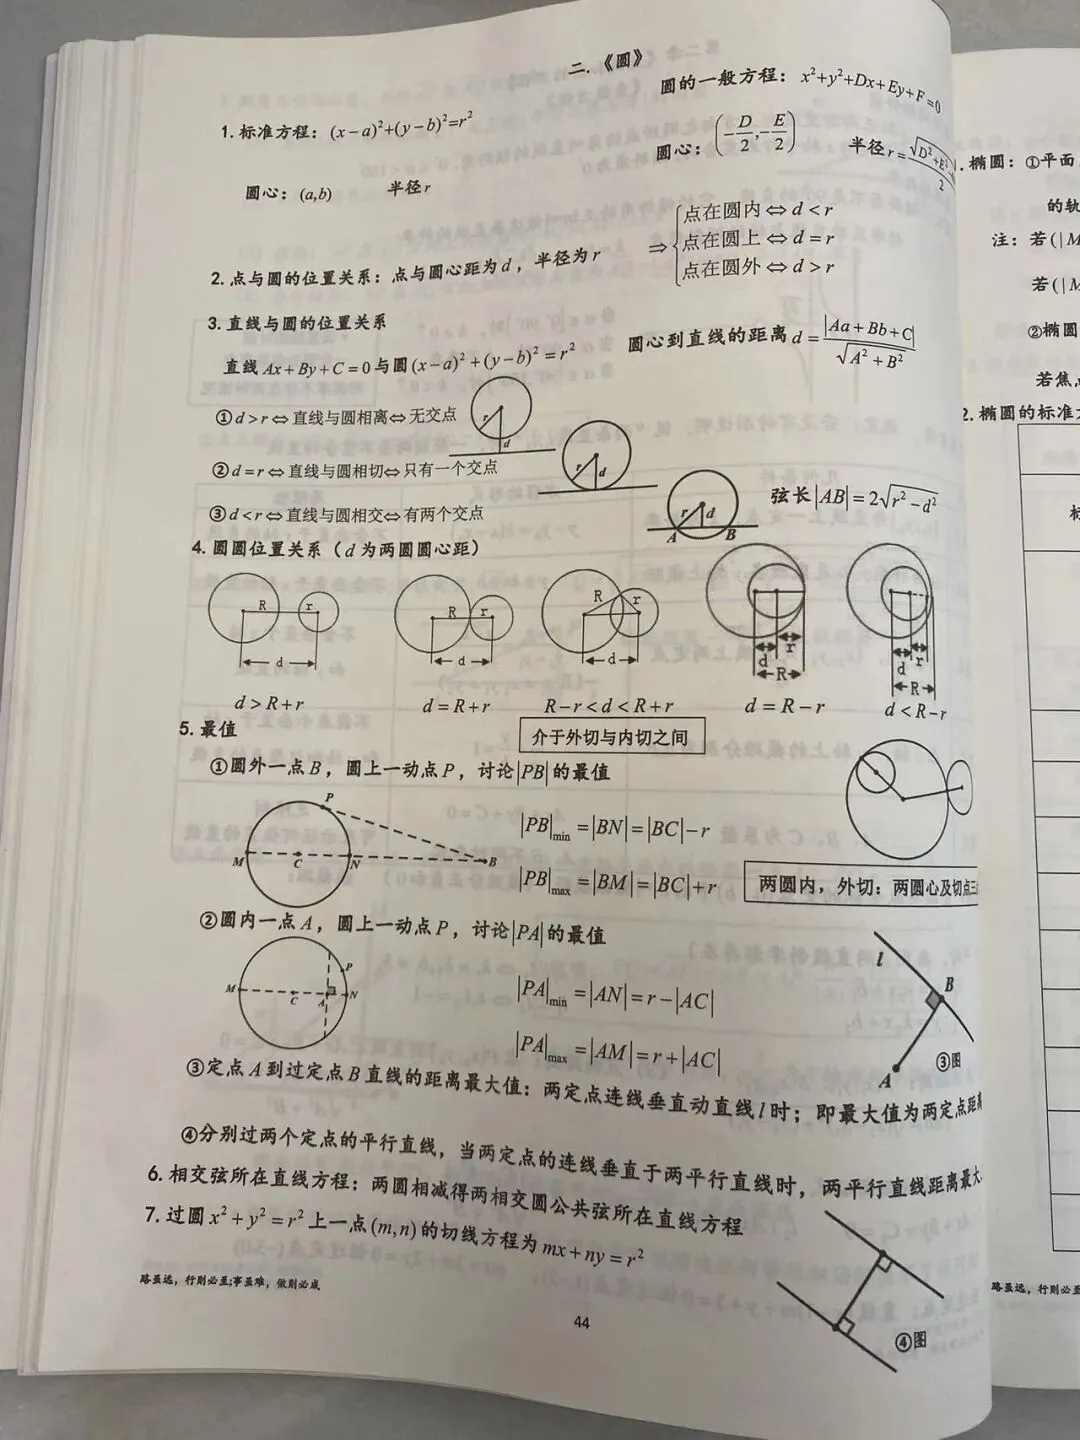 二.《圆》
1.标准方程：(x－a)²+(y－b)²=r²
圆的一般方程：x²+y²+Dx+Ey+F=0
圆心：(a,b) 半径r
圆心：(－D/2,－E/2) 半径r=
2.点与圆的位置关系：点与圆心距为d，半径为r
⇒{点在圆内⇔d<r
点在圆上⇔d=r
点在圆外⇔d>r
3.直线与圆的位置关系
直线Ax+By+C=0与圆(x－a)²+(y－b)²=r²
圆心到直线的距离d=|Aa+Bb+C|/√(A²+B²)
①d>r⇔直线与圆相离⇔无交点
r d
②d=r⇔直线与圆相切⇔只有一个交点
r d
③d<r⇔直线与圆相交⇔有两个交点
r d A B
弦长|AB|=2√(r²－d²)
4.圆圆位置关系（d为两圆圆心距）
R r d
R r d
R r d
d r R
d r R
d>R+r
d=R+r
R－r<d<R+r
d=R－r
d<R－r
介于外切与内切之间
5.最值
①圆外一点B，圆上一动点P，讨论|PB|的最值
P M C N B
|PB|min=|BN|=|BC|－r
|PB|max=|BM|=|BC|+r
两圆内，外切：两圆心及切点三
②圆内一点A，圆上一动点P，讨论|PA|的最值
P M C A N
|PA|min=|AN|=r－|AC|
|PA|max=|AM|=r+|AC|
l B A
③图
③定点A到过定点B直线的距离最大值：两定点连线垂直动直线l时；即最大值为两定点距离
④分别过两个定点的平行直线，当两定点的连线垂直于两平行直线时，两平行直线距离最大
6.相交弦所在直线方程：两圆相减得两相交圆公共弦所在直线方程
7.过圆x²+y²=r²上一点(m,n)的切线方程为mx+ny=r²
④图
路虽远，行则必至;事虽难，做则必成
44
.椭圆：①平面
的轨
注：若(|M
若(|M
②椭圆
若焦点
2.椭圆的标准
路虽远，行则必至